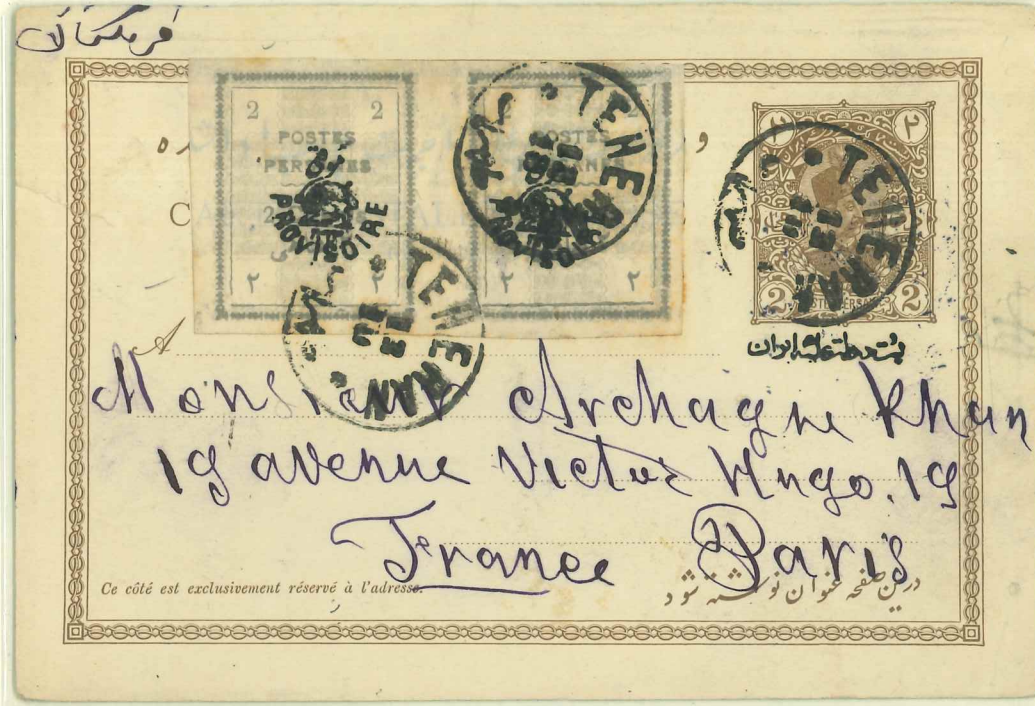 فرنگستان
2 2
POSTES
PERSANES
2
۲ ۲
PROVISOIRE
POSTES
PERSANES
PROVISOIRE
TEHERAN
TEHERAN
13
III
TEHERAN
13
III
۲ ۲
2 2
پست دولت علیه ایران
A
Monsieur Archague Khan
19 avenue Victor Hugo. 19
France Paris
Ce côté est exclusivement réservé à l'adresse.
درین صفحه عنوان نوشته شود